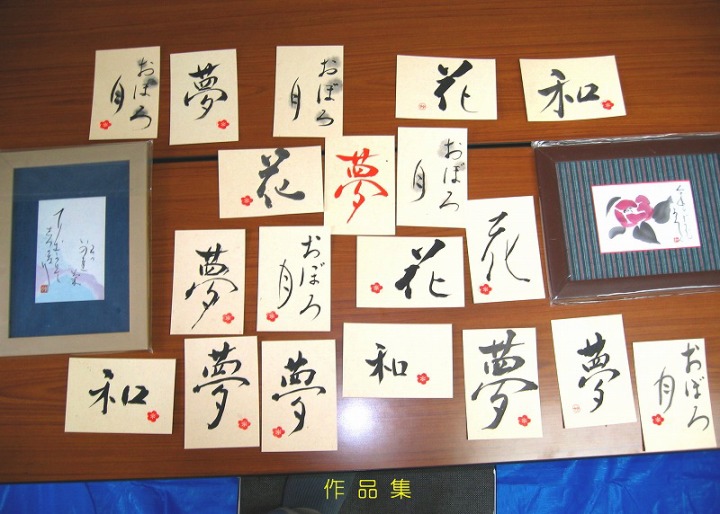 おぼろ
月
夢
おぼろ
月
花
和
花
夢
おぼろ
月
夢
おぼろ
月
花
花
和
夢
夢
和
夢
夢
おぼろ
月
作品集